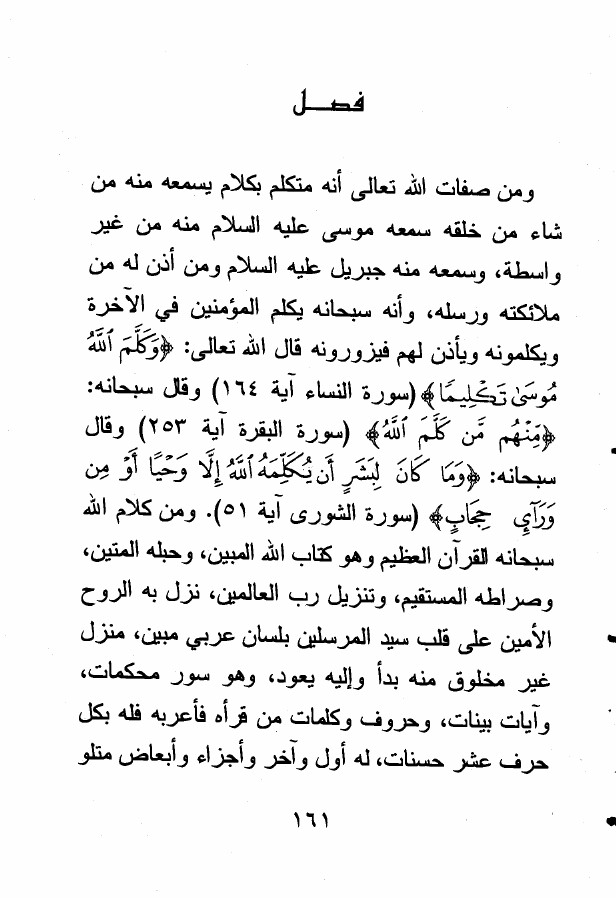 فصل
ومن صفات الله تعالى أنه متكلم بكلام يسمعه منه من
شاء من خلقه سمعه موسى عليه السلام منه من غير
واسطة، وسمعه منه جبريل عليه السلام ومن أذن له من
ملائكته ورسله، وأنه سبحانه يكلم المؤمنين في الآخرة
ويكلمونه ويأذن لهم فيزورونه قال الله تعالى: ﴿وَكَلَّمَ ٱللَّهُ
مُوسَىٰ تَكْلِيمًا﴾ (سورة النساء آية ١٦٤) وقال سبحانه:
﴿مِّنْهُم مَّن كَلَّمَ ٱللَّهُ﴾ (سورة البقرة آية ٢٥٣) وقال
سبحانه: ﴿وَمَا كَانَ لِبَشَرٍ أَن يُكَلِّمَهُ ٱللَّهُ إِلَّا وَحْيًا أَوْ مِن
وَرَآىِٕ حِجَابٍ﴾ (سورة الشورى آية ٥١). ومن كلام الله
سبحانه القرآن العظيم وهو كتاب الله المبين، وحبله المتين،
وصراطه المستقيم، وتنزيل رب العالمين، نزل به الروح
الأمين على قلب سيد المرسلين بلسان عربي مبين، منزل
غير مخلوق منه بدأ وإليه يعود، وهو سور محكمات،
وآيات بينات، وحروف وكلمات من قرأه فأعربه فله بكل
حرف عشر حسنات، له أول وآخر وأجزاء وأبعاض متلو
١٦١